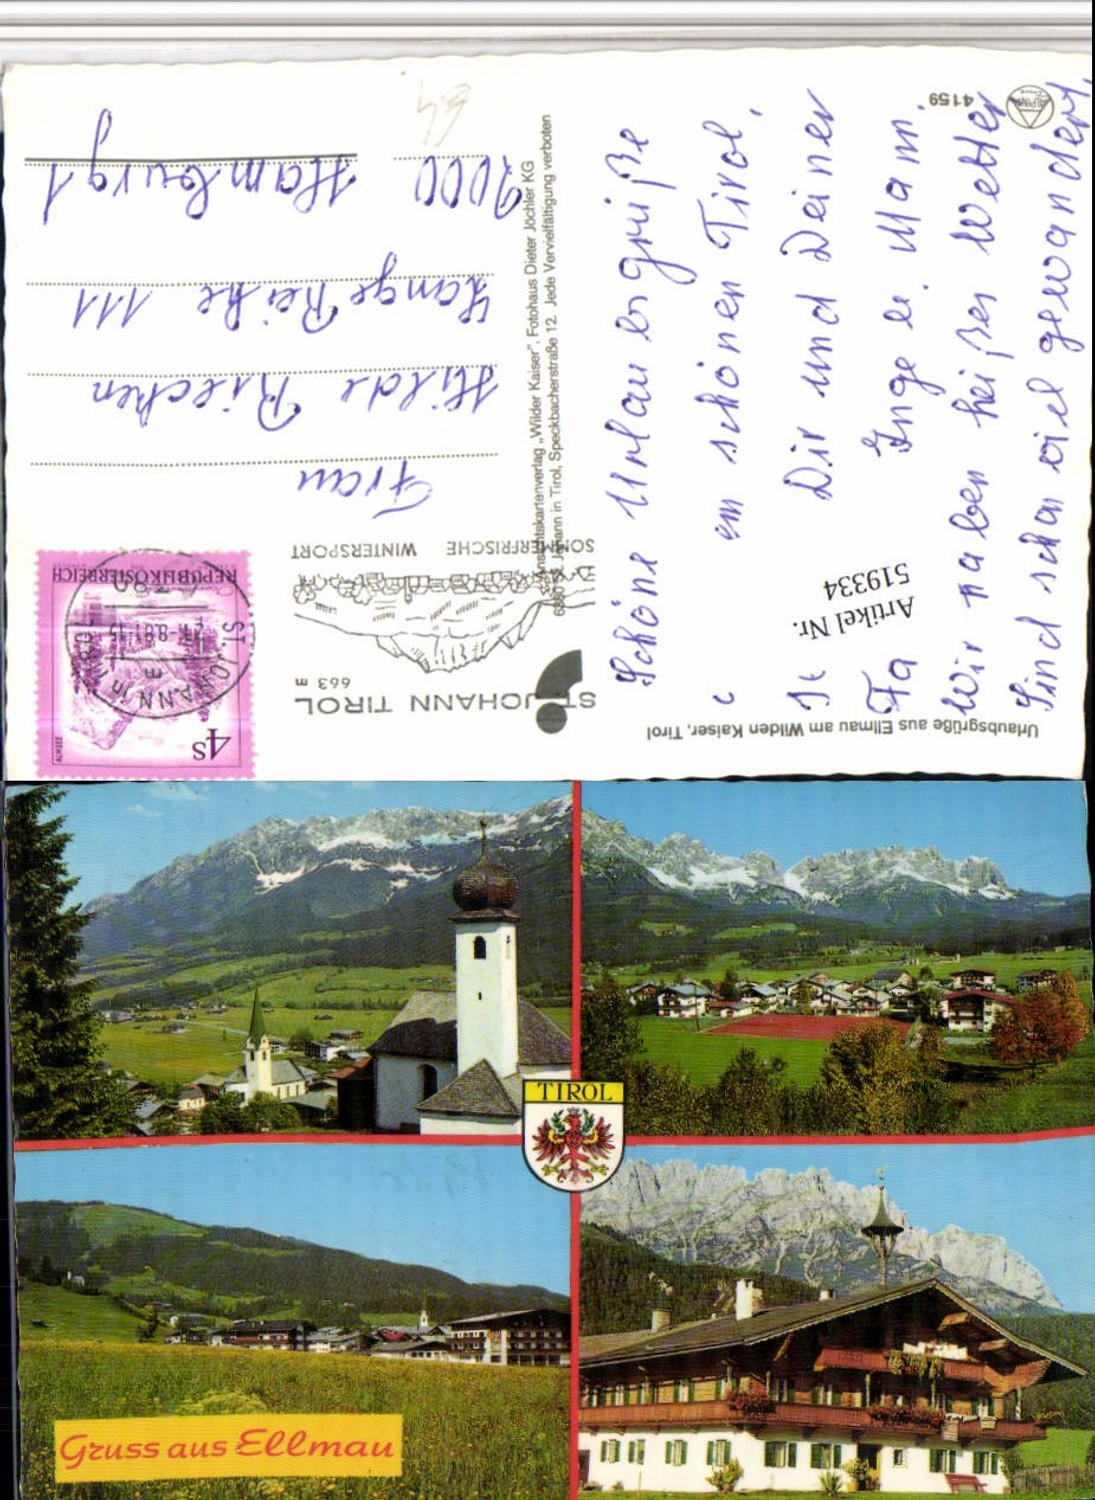 Urlaubsgrüße aus Ellmau am Wilden Kaiser, Tirol
4159
ALPINA
Schöne Urlaubsgrüße
am schönen Tirol,
Dir und Deiner
Inge u. Mann.
Wir haben heißes Wetter
Sind schon viel gewandert,
Artikel Nr.
519334
Ansichtskartenverlag „Wilder Kaiser", Fotohaus Dieter Jöchler KG
6380 St. Johann in Tirol, Speckbacherstraße 12. Jede Vervielfältigung verboten
ST. JOHANN TIROL
663 m
SOMMERFRISCHE WINTERSPORT
4S
ALMSEE
REPUBLIK ÖSTERREICH
ST. JOHANN in TIROL
Frau
Hilde
Lange Reihe 111
2000 Hamburg 1
TIROL
Gruss aus Ellmau